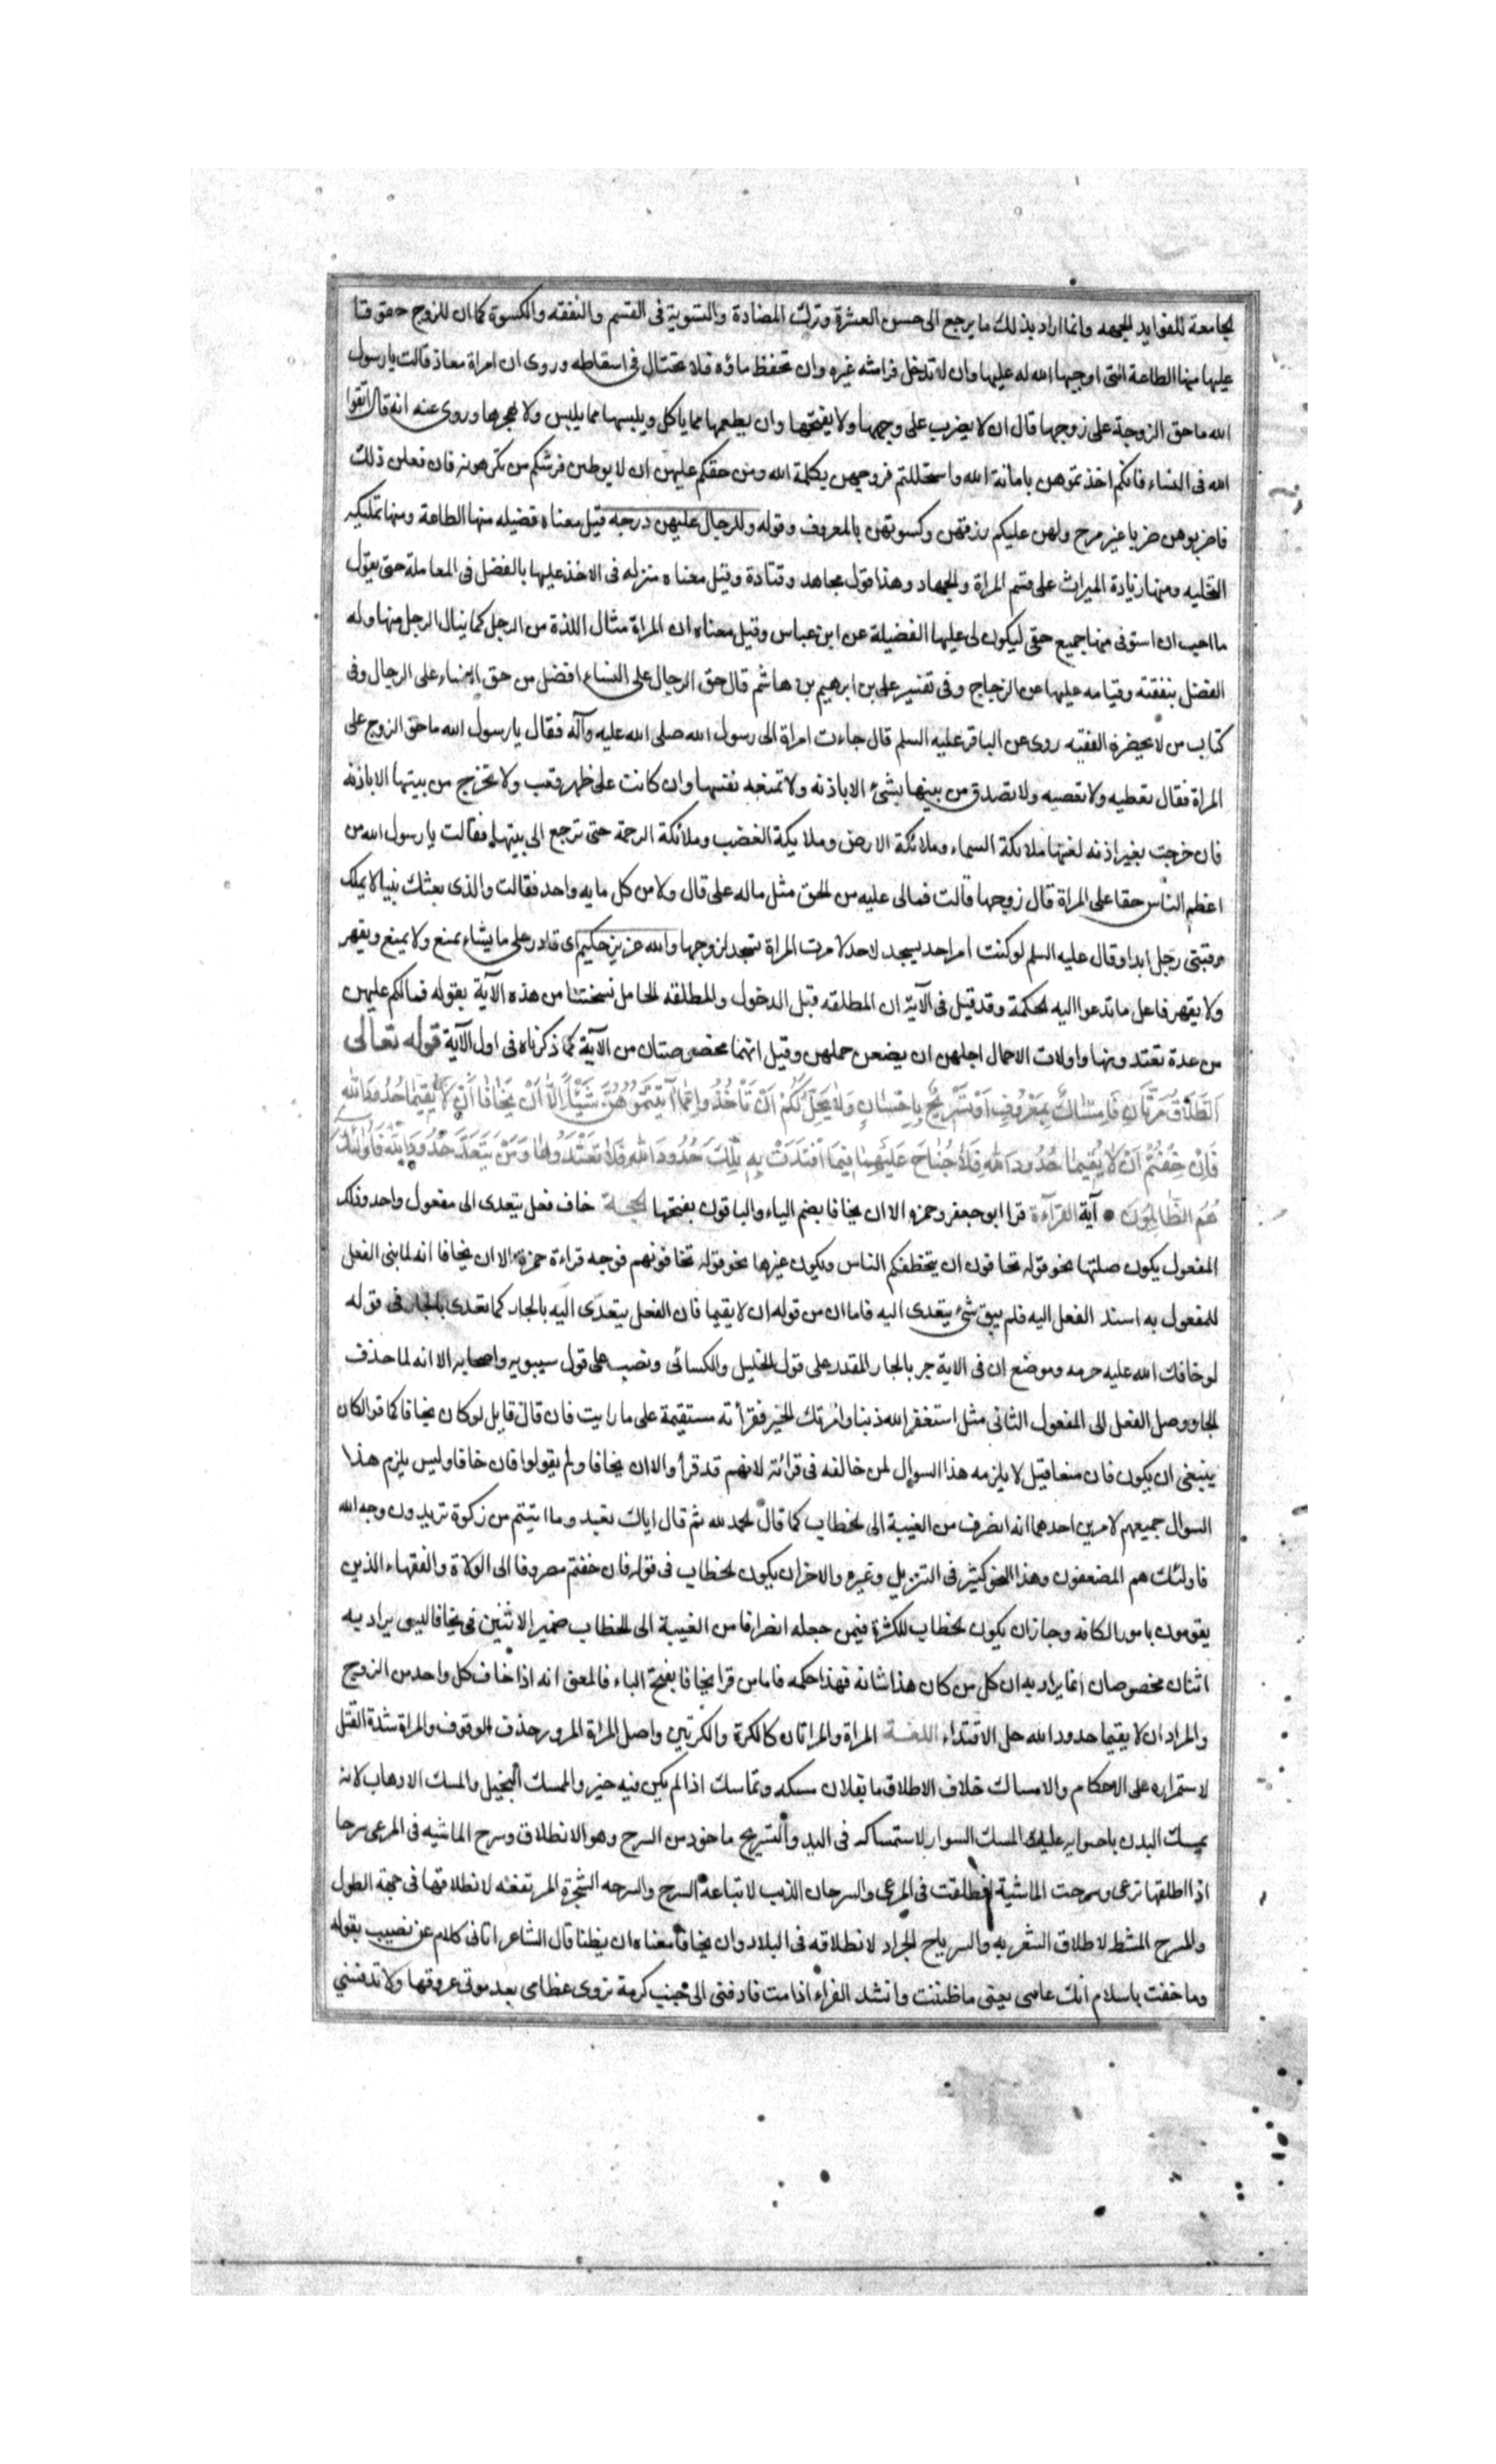 الجامعة للفوايد الجمه وانما اراد بذلك ما يرجع الى حسن العشرة وترك المضادة والتسوية فى القسم والنفقه والكسوة كما ان للزوج حقوقا
عليها منها الطاعة التى اوجبها الله له عليها وان لا تدخل فراشه غيره وان تحفظ ماؤه فلا تحتال فى اسقاطه وروى ان امراة معاذ قالت يا رسول
الله ما حق الزوجة على زوجها قال ان لا يضرب على وجهها ولا يقبحها وان يطعمها مما ياكل ويلبسها مما يلبس ولا يهجرها وروى عنه انه قال اتقوا
الله فى النساء فانكم اخذتموهن بامانة الله واستحللتم فروجهن بكلمة الله ومن حقكم عليهن ان لا يوطين فرشكم من تكرهونه فان فعلن ذلك
فاضربوهن ضربا غير مبرح ولهن عليكم رزقهن وكسوتهن بالمعروف وقوله وللرجال عليهن درجه قيل معناه فضيله منها الطاعة ومنها تمليكه
التخليه ومنها زيادة الميراث على قسم المراة والجهاد وهذا قول مجاهد وقتادة وقيل معناه منزله فى الاخذ عليها بالفضل فى المعاملة حتى يقول
ما احب ان استوفى منها جميع حقى ليكون لى عليها الفضيلة عن ابن عباس وقيل معناه ان المراة تنال اللذة من الرجل كما ينال الرجل منها وله
الفضل بنفقته وقيامه عليها عن الزجاج وفى تفسير على بن ابرهيم بن هاشم قال حق الرجال على النساء افضل من حق النساء على الرجال وفى
كتاب من لا يحضره الفقيه روى عن الباقر عليه السلم قال جاءت امراة الى رسول الله صلى الله عليه وآله فقال يا رسول الله ما حق الزوج على
المراة فقال تعطيه ولا تعصيه ولا تصدق من بيتها بشئ الا باذنه ولا تمنعه نفسها وان كانت على ظهر قتب ولا تخرج من بيتها الا باذنه
فان خرجت بغير اذنه لعنتها ملائكة السماء وملائكة الارض وملايكة الغضب وملائكة الرحمة حتى ترجع الى بيتها فقالت يا رسول الله من
اعظم الناس حقا على المراة قال زوجها قالت فمالى عليه من الحق مثل ماله على قال ولا من كل مايه واحد فقالت والذى بعثك نبيا لا يملك
رقبتى رجل ابدا وقال عليه السلم لو كنت امر احد يسجد لاحد لامرت المراة تسجد لزوجها والله عزيز حكيم اى قادر على ما يشاء يمنع ولا يمنع ويقهر
ولا يقهر فاعل ما تدعوا اليه الحكمة وقد قيل فى الآية ان المطلقه قبل الدخول والمطلقه الحامل نسختتا من هذه الآية بقوله فمالكم عليهن
من عدة تعتدونها واولات الاحمال اجلهن ان يضعن حملهن وقيل انهما مخصوصتان من الآية كما ذكرناه فى اول الآية قوله تعالى
اَلطَّلَاقُ مَرَّتَانِ فَاِمْسَاكٌ بِمَعْرُوفٍ اَوْ تَسْرِيحٌ بِاِحْسَانٍ وَلَا يَحِلُّ لَكُمْ اَنْ تَأْخُذُوا مِمَّا آتَيْتُمُوهُنَّ شَيْئًا اِلَّا اَنْ يَخَافَا اَنْ لَا يُقِيمَا حُدُودَ اللهِ
فَاِنْ خِفْتُمْ اَنْ لَا يُقِيمَا حُدُودَ اللهِ فَلَا جُنَاحَ عَلَيْهِمَا فِيمَا افْتَدَتْ بِهِ تِلْكَ حُدُودُ اللهِ فَلَا تَعْتَدُوهَا وَمَنْ يَتَعَدَّ حُدُودَ اللهِ فَاُولٰئِكَ
هُمُ الظَّالِمُونَ • آية القرآءة قرا ابو جعفر وحمزه الا ان يخافا بضم الياء والباقون بفتحها الحجة خاف فعل يتعدى الى مفعول واحد وذلك
المفعول يكون صلتها نحو قوله تخافون ان يتخطفكم الناس ويكون غيرها نحو قوله تخافونهم فوجه قراءة حمزة الا ان يخافا انه لما بنى الفعل
للمفعول به اسند الفعل اليه فلم يبق شئ يتعدى اليه فاما ان من قوله ان لا يقيما فان الفعل يتعدى اليه بالجار كما تعدى بالجار فى قوله
لو خافك الله عليه حرمه وموضع ان فى الاية جر بالجار المقدر على قول الخليل والكسائى ونصب على قول سيبويه واصحابه الا انه لما حذف
الجار وصل الفعل الى المفعول الثانى مثل استغفر الله ذنبا وامرتك الخير فقرأته مستقيمة على ما رايت فان قال قايل لو كان يخافا كما قرا لكان
ينبغى ان يكون فان منعا قيل لا يلزمه هذا السوال لمن خالفه فى قرائته لانهم قد قرأوا الا ان يخافا ولم يقولوا فان خافا وليس يلزم هذا
السوال جميعهم لامرين احدهما انه انصرف من الغيبة الى الخطاب كما قال الحمد لله ثم قال اياك نعبد وما اتيتم من زكوة تريدون وجه الله
فاولئك هم المضعفون وهذا النحو كثير فى التنزيل وغيره والاخر ان يكون الخطاب فى قوله فان خفتم مصروفا الى الولاة والفقهاء الذين
يقومون بامور الكافه وجاز ان يكون الخطاب للكثرة فيمن جعله انصرافا من الغيبة الى الخطاب ضمير الاثنين فى يخافا ليس يراد به
اثنان مخصوصان انما يراد به ان كل من كان هذا شانه فهذا حكمه فاما من قرا يخافا بفتح الياء فالمعنى انه اذا خاف كل واحد من الزوج
والمراة ان لا يقيما حدود الله حل الافتداء اللغة المراة والمراتان كالكرة والكرتين واصل المراة المرور حذف الوقوف والمراة شدة القتل
لاستمراره على الاحكام والامساك خلاف الاطلاق ما بفلان مسكه وتماسك اذا لم يكن فيه خير والممسك البخيل والمسك الاهاب لانه
يمسك البدن باحتوايه عليه والمسك السوار لاستمساكه فى اليد والتسريح ماخوذ من السرح وهو الانطلاق وسرح الماشيه فى المرعى سرحا
اذا اطلقها ترعى وسرحت الماشية انطلقت فى المرعى والسرحان الذيب لاتباعه السرح والسرحه الشجرة المرتفعه لانطلاقها فى جهة الطول
والمسرح المشط لاطلاق الشعر به والسرياح الجراد لانطلاقه فى البلاد وان يخافا معناه ان يظنا قال الشاعر اتانى كلام عن نصيب يقوله
وما خفت يا سلام انك عايبى يعنى ما ظننت وانشد الفراء اذا مت فادفنى الى جنب كرمة تروى عظامى بعد موتى عروقها ولا تدفننى